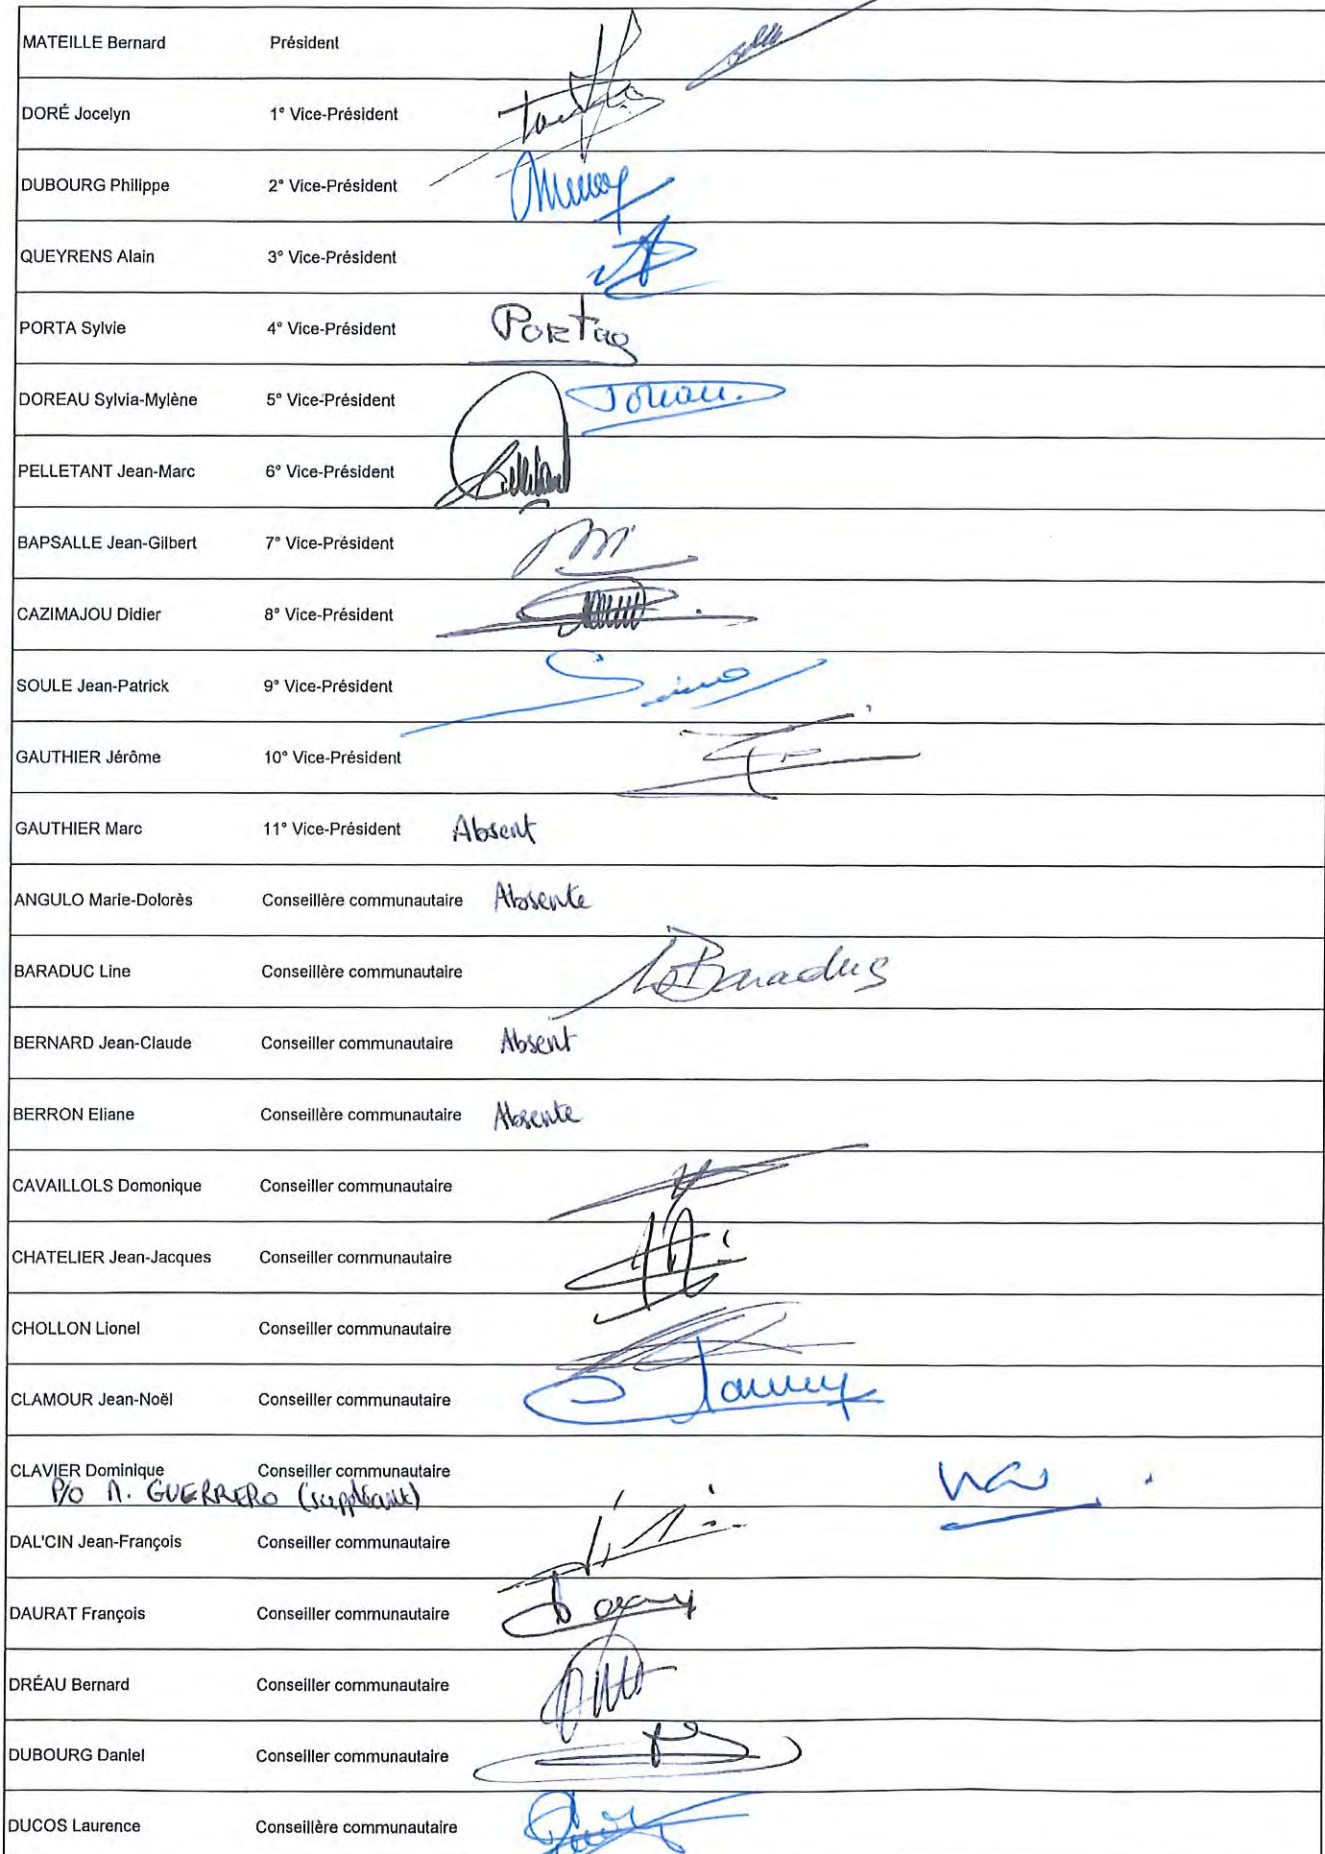 MATEILLE Bernard Président
DORÉ Jocelyn 1° Vice-Président
DUBOURG Philippe 2° Vice-Président
QUEYRENS Alain 3° Vice-Président
PORTA Sylvie 4° Vice-Président
DOREAU Sylvia-Mylène 5° Vice-Président
PELLETANT Jean-Marc 6° Vice-Président
BAPSALLE Jean-Gilbert 7° Vice-Président
CAZIMAJOU Didier 8° Vice-Président
SOULE Jean-Patrick 9° Vice-Président
GAUTHIER Jérôme 10° Vice-Président
GAUTHIER Marc 11° Vice-Président Absent
ANGULO Marie-Dolorès Conseillère communautaire Absente
BARADUC Line Conseillère communautaire Baraduc
BERNARD Jean-Claude Conseiller communautaire Absent
BERRON Eliane Conseillère communautaire Absente
CAVAILLOLS Domonique Conseiller communautaire
CHATELIER Jean-Jacques Conseiller communautaire
CHOLLON Lionel Conseiller communautaire
CLAMOUR Jean-Noël Conseiller communautaire
CLAVIER Dominique Conseiller communautaire
P/O M. GUERRERO (suppléant)
DAL'CIN Jean-François Conseiller communautaire
DAURAT François Conseiller communautaire
DRÉAU Bernard Conseiller communautaire
DUBOURG Daniel Conseiller communautaire
DUCOS Laurence Conseillère communautaire